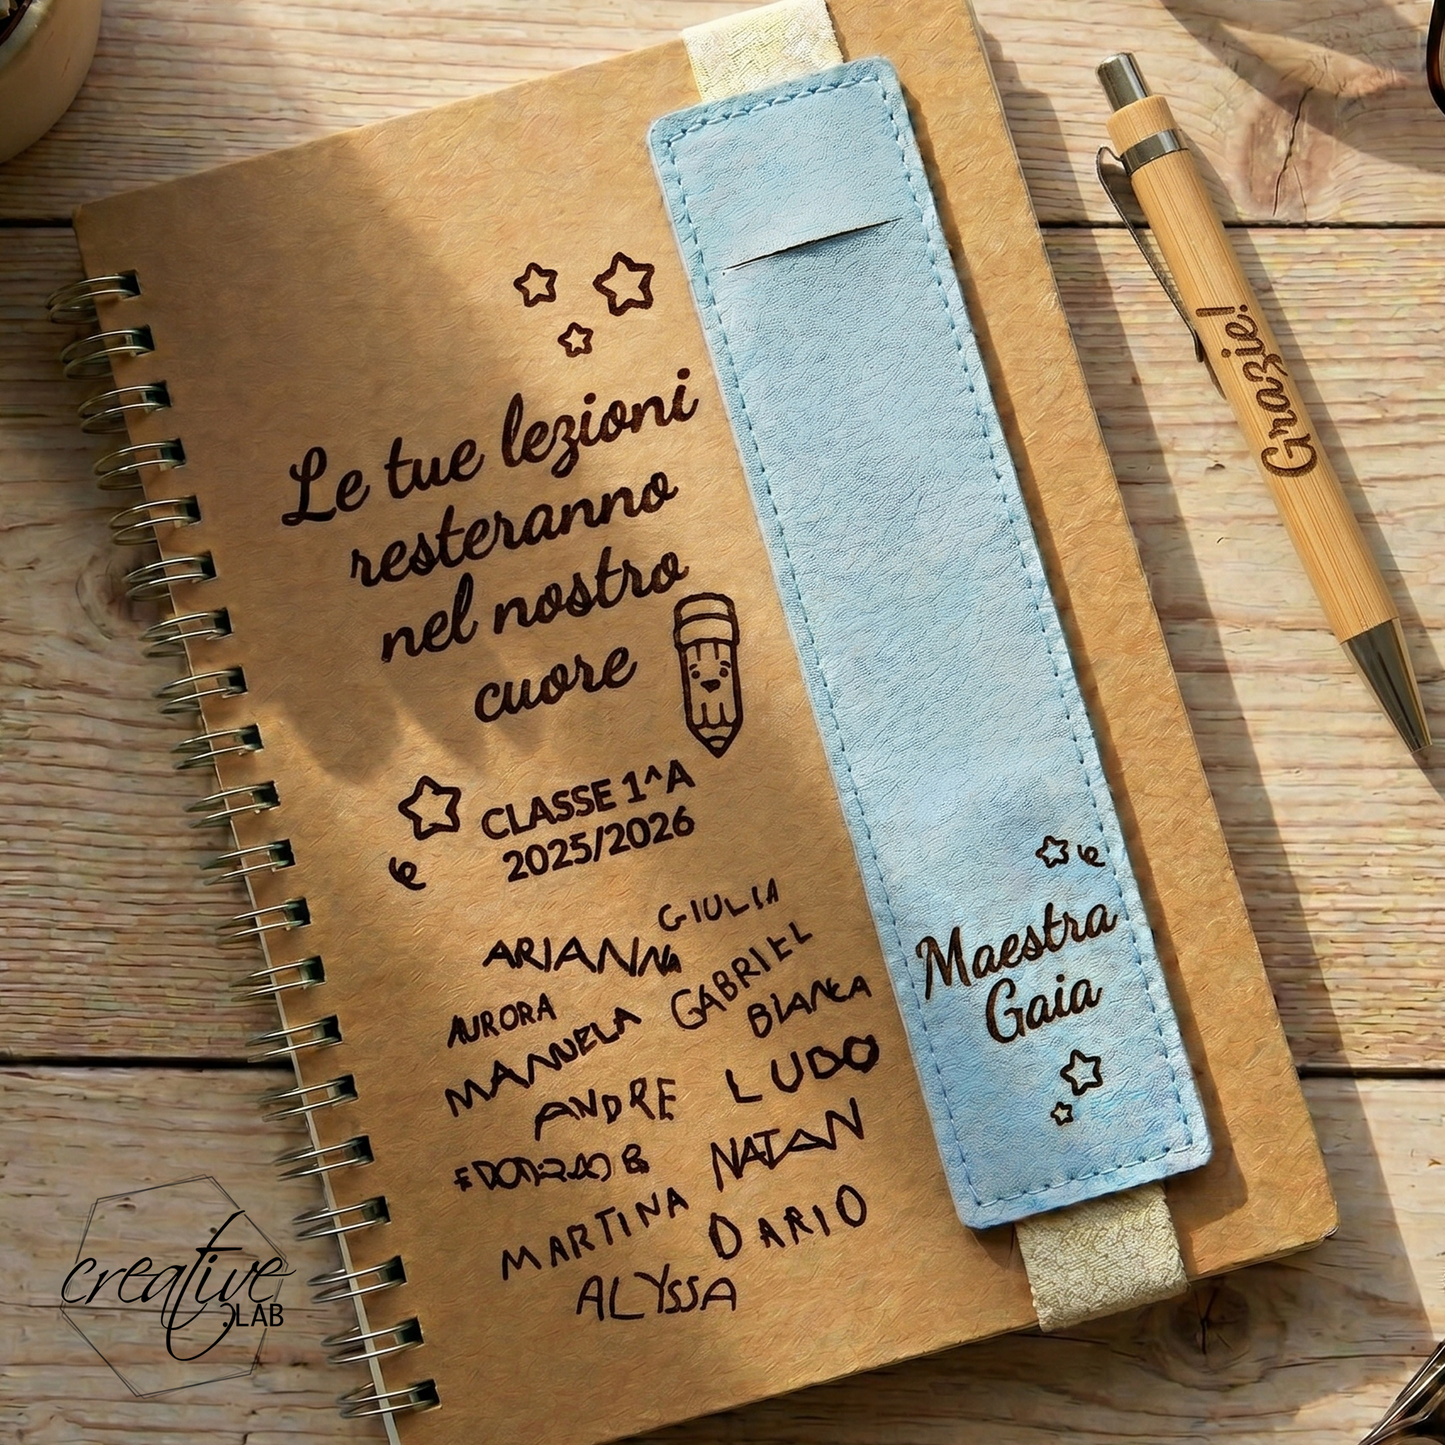 Le tue lezioni
resteranno
nel nostro
cuore
CLASSE 1^A
2025/2026
GIULIA
ARIANNA
GABRIEL
AURORA
BIANCA
MANUELA
LUDO
ANDRE
NATAN
MARTINA
DARIO
ALYSSA
Maestra
Gaia
Grazie!
creative
.LAB